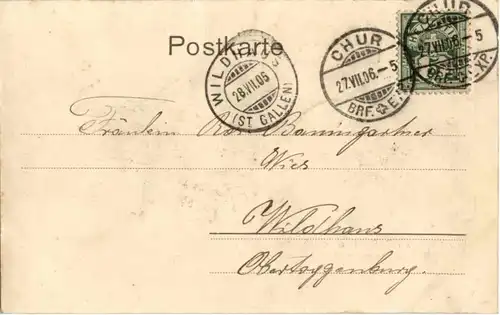 Postkarte
WILDHAUS
28.VII.06
(ST GALLEN)
CHUR
27.VII.06.-5
BRF.
CHUR
27.VII.06.-5
BRF. EXP.
Fräulein Baumgartner
Wildhaus
Obertoggenburg.